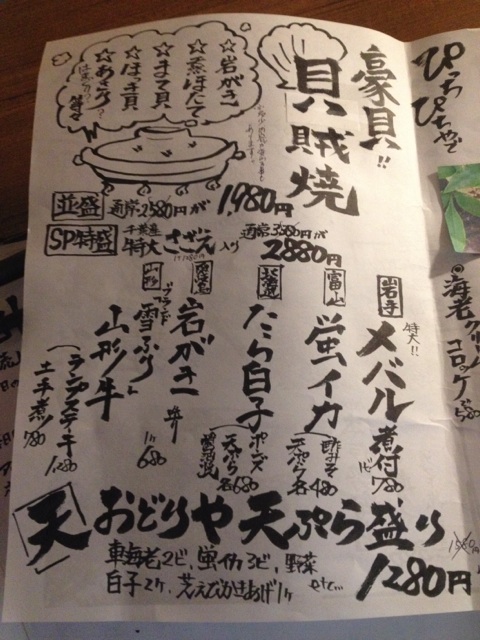 豪貝!!
貝賊焼
☆岩がき
☆蒸ほたて
☆まて貝
☆ほっき貝
☆あさり
はまぐり? 等々
並盛 通常2580円が 1,980円
SP特盛 千葉産 特大さざえ入り 通常3580円が 2880円
岩手
特大!!
メバル煮付
1ピ 780
富山
蛍イカ
酢みそ
天ぷら
各480
北海道
たら白子
ポンズ
天ぷら
各680
岩がき
1ヶ 680
山形
ブランド
雪ふり
山形牛
ランプステーキ 1280
土手煮 780
天 おどりや天ぷら盛り
車海老2ピ、蛍イカ3ピ、野菜
白子2ヶ、芝えびかきあげ1ヶ etc...
1280円
ぴっちぴちゃで
海老クリームコロッケ 580